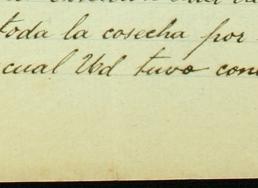 toda la cosecha por
cual Ud tuvo con